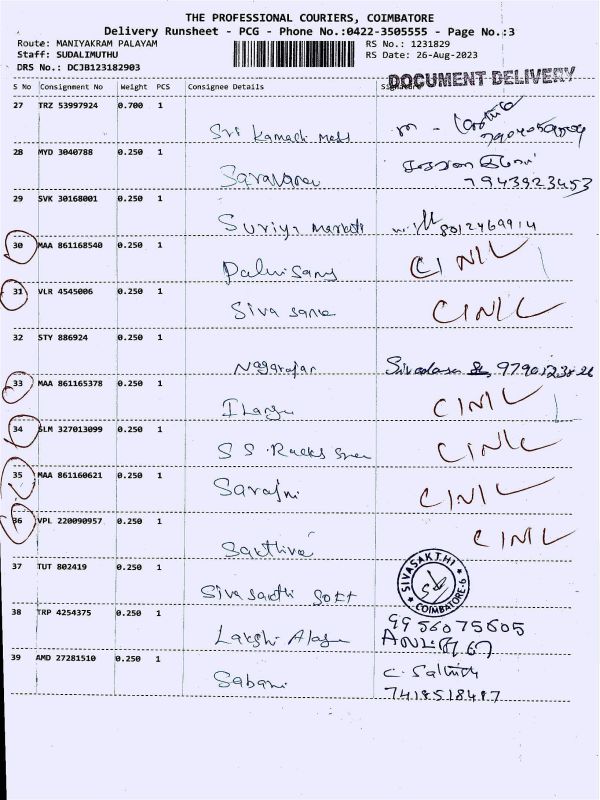 THE PROFESSIONAL COURIERS, COIMBATORE
Delivery Runsheet - PCG - Phone No.:0422-3505555 - Page No.:3
Route: MANIYAKRAM PALAYAM RS No.: 1231829
Staff: SUDALIMUTHU RS Date: 26-Aug-2023
DRS No.: DCJB123182903
DOCUMENT DELIVERY
S No Consignment No Weight PCS Consignee Details
27 TRZ 53997924 0.700 1
Sri Kamachi
28 MYD 3040788 0.250 1
Saravanan
7943923453
29 SVK 30168001 0.250 1
Suriya 8012469914
30 MAA 861168540 0.250 1
Palnisamy CINIL
31 VLR 4545006 0.250 1
Siva CINIL
32 STY 886924 0.250 1
Nagarajan
33 MAA 861165378 0.250 1
CINIL
34 SLM 327013099 0.250 1
S S. CINIL
35 MAA 861160621 0.250 1
CINIL
36 VPL 220090957 0.250 1
CINIL
37 TUT 802419 0.250 1
Siva sakthi Soft SIVASAKTHI COIMBATORE-6
38 TRP 4254375 0.250 1
9956075605
39 AMD 27281510 0.250 1
Sabani
7418518487